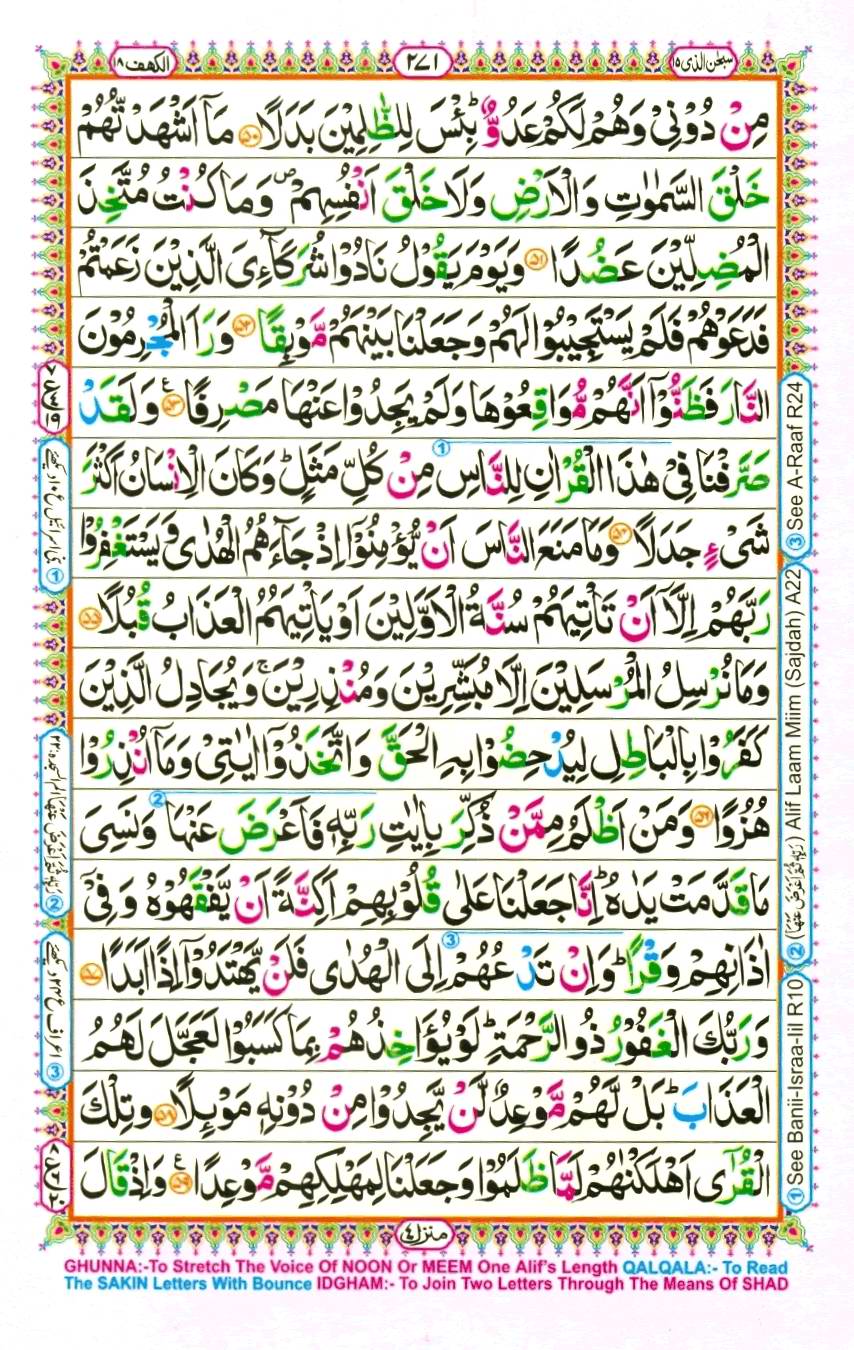 سبحٰن الذی ۱۵
۲۷۱
الکهف ۱۸
مِنْ دُوْنِیْ وَهُمْ لَكُمْ عَدُوٌّ ؕ بِئْسَ لِلظّٰلِمِیْنَ بَدَلًا ۵۰ مَاۤ اَشْهَدْتُّهُمْ
خَلْقَ السَّمٰوٰتِ وَالْاَرْضِ وَلَا خَلْقَ اَنْفُسِهِمْ ۪ وَمَا كُنْتُ مُتَّخِذَ
الْمُضِلِّیْنَ عَضُدًا ۵۱ وَیَوْمَ یَقُوْلُ نَادُوْا شُرَكَآءِیَ الَّذِیْنَ زَعَمْتُمْ
فَدَعَوْهُمْ فَلَمْ یَسْتَجِیْبُوْا لَهُمْ وَجَعَلْنَا بَیْنَهُمْ مَّوْبِقًا ۵۲ وَرَاَ الْمُجْرِمُوْنَ
النَّارَ فَظَنُّوْۤا اَنَّهُمْ مُّوَاقِعُوْهَا وَلَمْ یَجِدُوْا عَنْهَا مَصْرِفًا ۵۳ ع وَلَقَدْ
صَرَّفْنَا فِیْ هٰذَا الْقُرْاٰنِ لِلنَّاسِ مِنْ كُلِّ مَثَلٍ ؕ وَكَانَ الْاِنْسَانُ اَكْثَرَ
شَیْءٍ جَدَلًا ۵۴ وَمَا مَنَعَ النَّاسَ اَنْ یُّؤْمِنُوْۤا اِذْ جَآءَهُمُ الْهُدٰی وَیَسْتَغْفِرُوْا
رَبَّهُمْ اِلَّاۤ اَنْ تَاْتِیَهُمْ سُنَّةُ الْاَوَّلِیْنَ اَوْ یَاْتِیَهُمُ الْعَذَابُ قُبُلًا ۵۵
وَمَا نُرْسِلُ الْمُرْسَلِیْنَ اِلَّا مُبَشِّرِیْنَ وَمُنْذِرِیْنَ ۚ وَیُجَادِلُ الَّذِیْنَ
كَفَرُوْا بِالْبَاطِلِ لِیُدْحِضُوْا بِهِ الْحَقَّ وَاتَّخَذُوْۤا اٰیٰتِیْ وَمَاۤ اُنْذِرُوْا
هُزُوًا ۵۶ وَمَنْ اَظْلَمُ مِمَّنْ ذُكِّرَ بِاٰیٰتِ رَبِّهٖ فَاَعْرَضَ عَنْهَا وَنَسِیَ
مَا قَدَّمَتْ یَدٰهُ ؕ اِنَّا جَعَلْنَا عَلٰی قُلُوْبِهِمْ اَكِنَّةً اَنْ یَّفْقَهُوْهُ وَفِیْۤ
اٰذَانِهِمْ وَقْرًا ؕ وَاِنْ تَدْعُهُمْ اِلَی الْهُدٰی فَلَنْ یَّهْتَدُوْۤا اِذًا اَبَدًا
وَرَبُّكَ الْغَفُوْرُ ذُو الرَّحْمَةِ ؕ لَوْ یُؤَاخِذُهُمْ بِمَا كَسَبُوْا لَعَجَّلَ لَهُمُ
الْعَذَابَ ؕ بَلْ لَّهُمْ مَّوْعِدٌ لَّنْ یَّجِدُوْا مِنْ دُوْنِهٖ مَوْئِلًا وَتِلْكَ
الْقُرٰۤی اَهْلَكْنٰهُمْ لَمَّا ظَلَمُوْا وَجَعَلْنَا لِمَهْلِكِهِمْ مَّوْعِدًا ۵۹ ع وَاِذْ قَالَ
منزل ۴
③ See A-Raaf R24
② (رَبِّهٖ ثُمَّ اَعْرَضَ عَنْهَا) Alif Laam Miim (Sajdah) A22
① See Banii-Israa-Iil R10
GHUNNA:-To Stretch The Voice Of NOON Or MEEM One Alif's Length QALQALA:- To Read
The SAKIN Letters With Bounce IDGHAM:- To Join Two Letters Through The Means Of SHAD